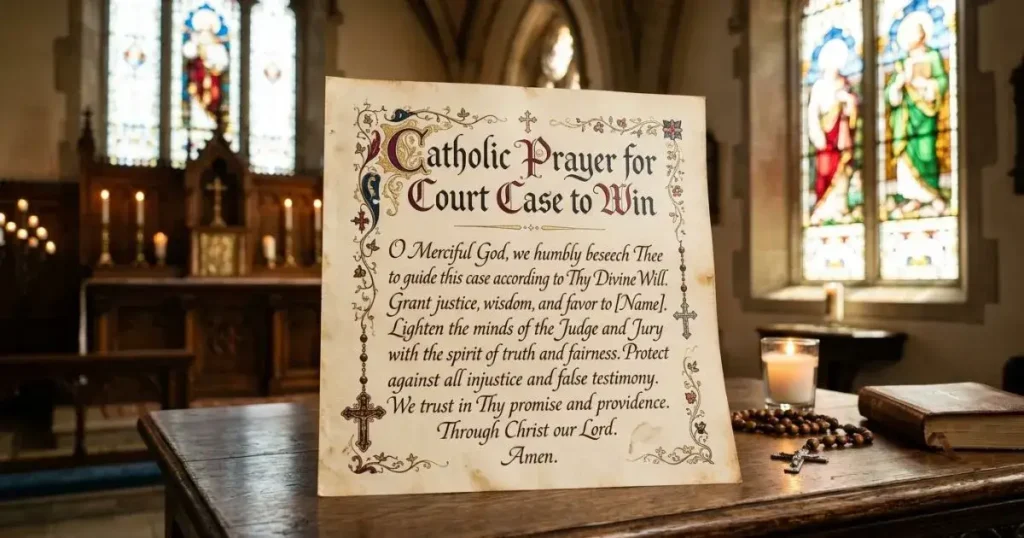 Catholic Prayer for
Court Case to Win
O Merciful God, we humbly beseech Thee
to guide this case according to Thy Divine Will.
Grant justice, wisdom, and favor to [Name].
Lighten the minds of the Judge and Jury
with the spirit of truth and fairness. Protect
against all injustice and false testimony.
We trust in Thy promise and providence.
Through Christ our Lord.
Amen.